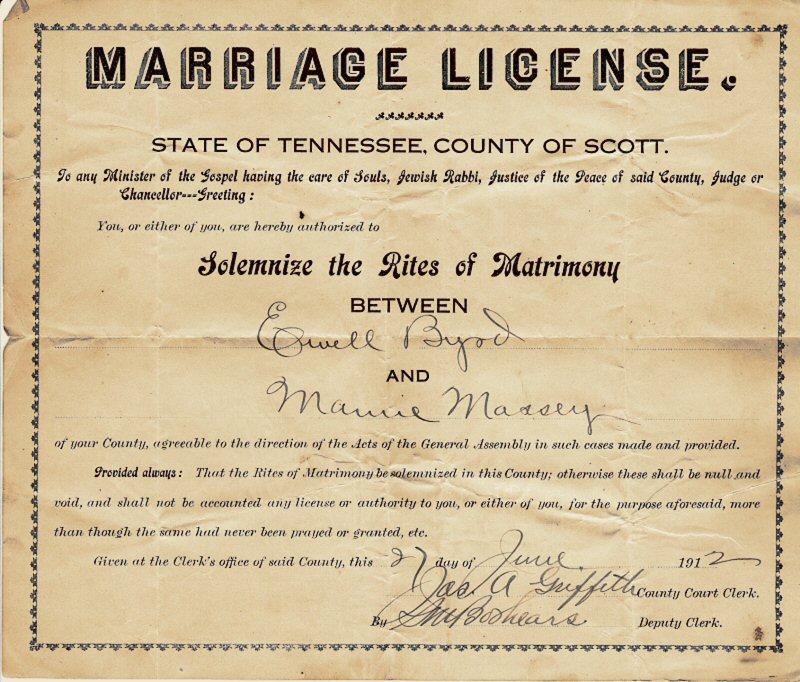 MARRIAGE LICENSE.
STATE OF TENNESSEE, COUNTY OF SCOTT.
To any Minister of the Gospel having the care of Souls, Jewish Rabbi, Justice of the Peace of said County, Judge or
Chancellor---Greeting:
You, or either of you, are hereby authorized to
Solemnize the Rites of Matrimony
BETWEEN
Ewell Byrd
AND
Mamie Massey
of your County, agreeable to the direction of the Acts of the General Assembly in such cases made and provided.
Provided always: That the Rites of Matrimony be solemnized in this County; otherwise these shall be null and
void, and shall not be accounted any license or authority to you, or either of you, for the purpose aforesaid, more
than though the same had never been prayed or granted, etc.
Given at the Clerk's office of said County, this 27 day of June 1912
Jas. A Griffith County Court Clerk.
By Boshears Deputy Clerk.